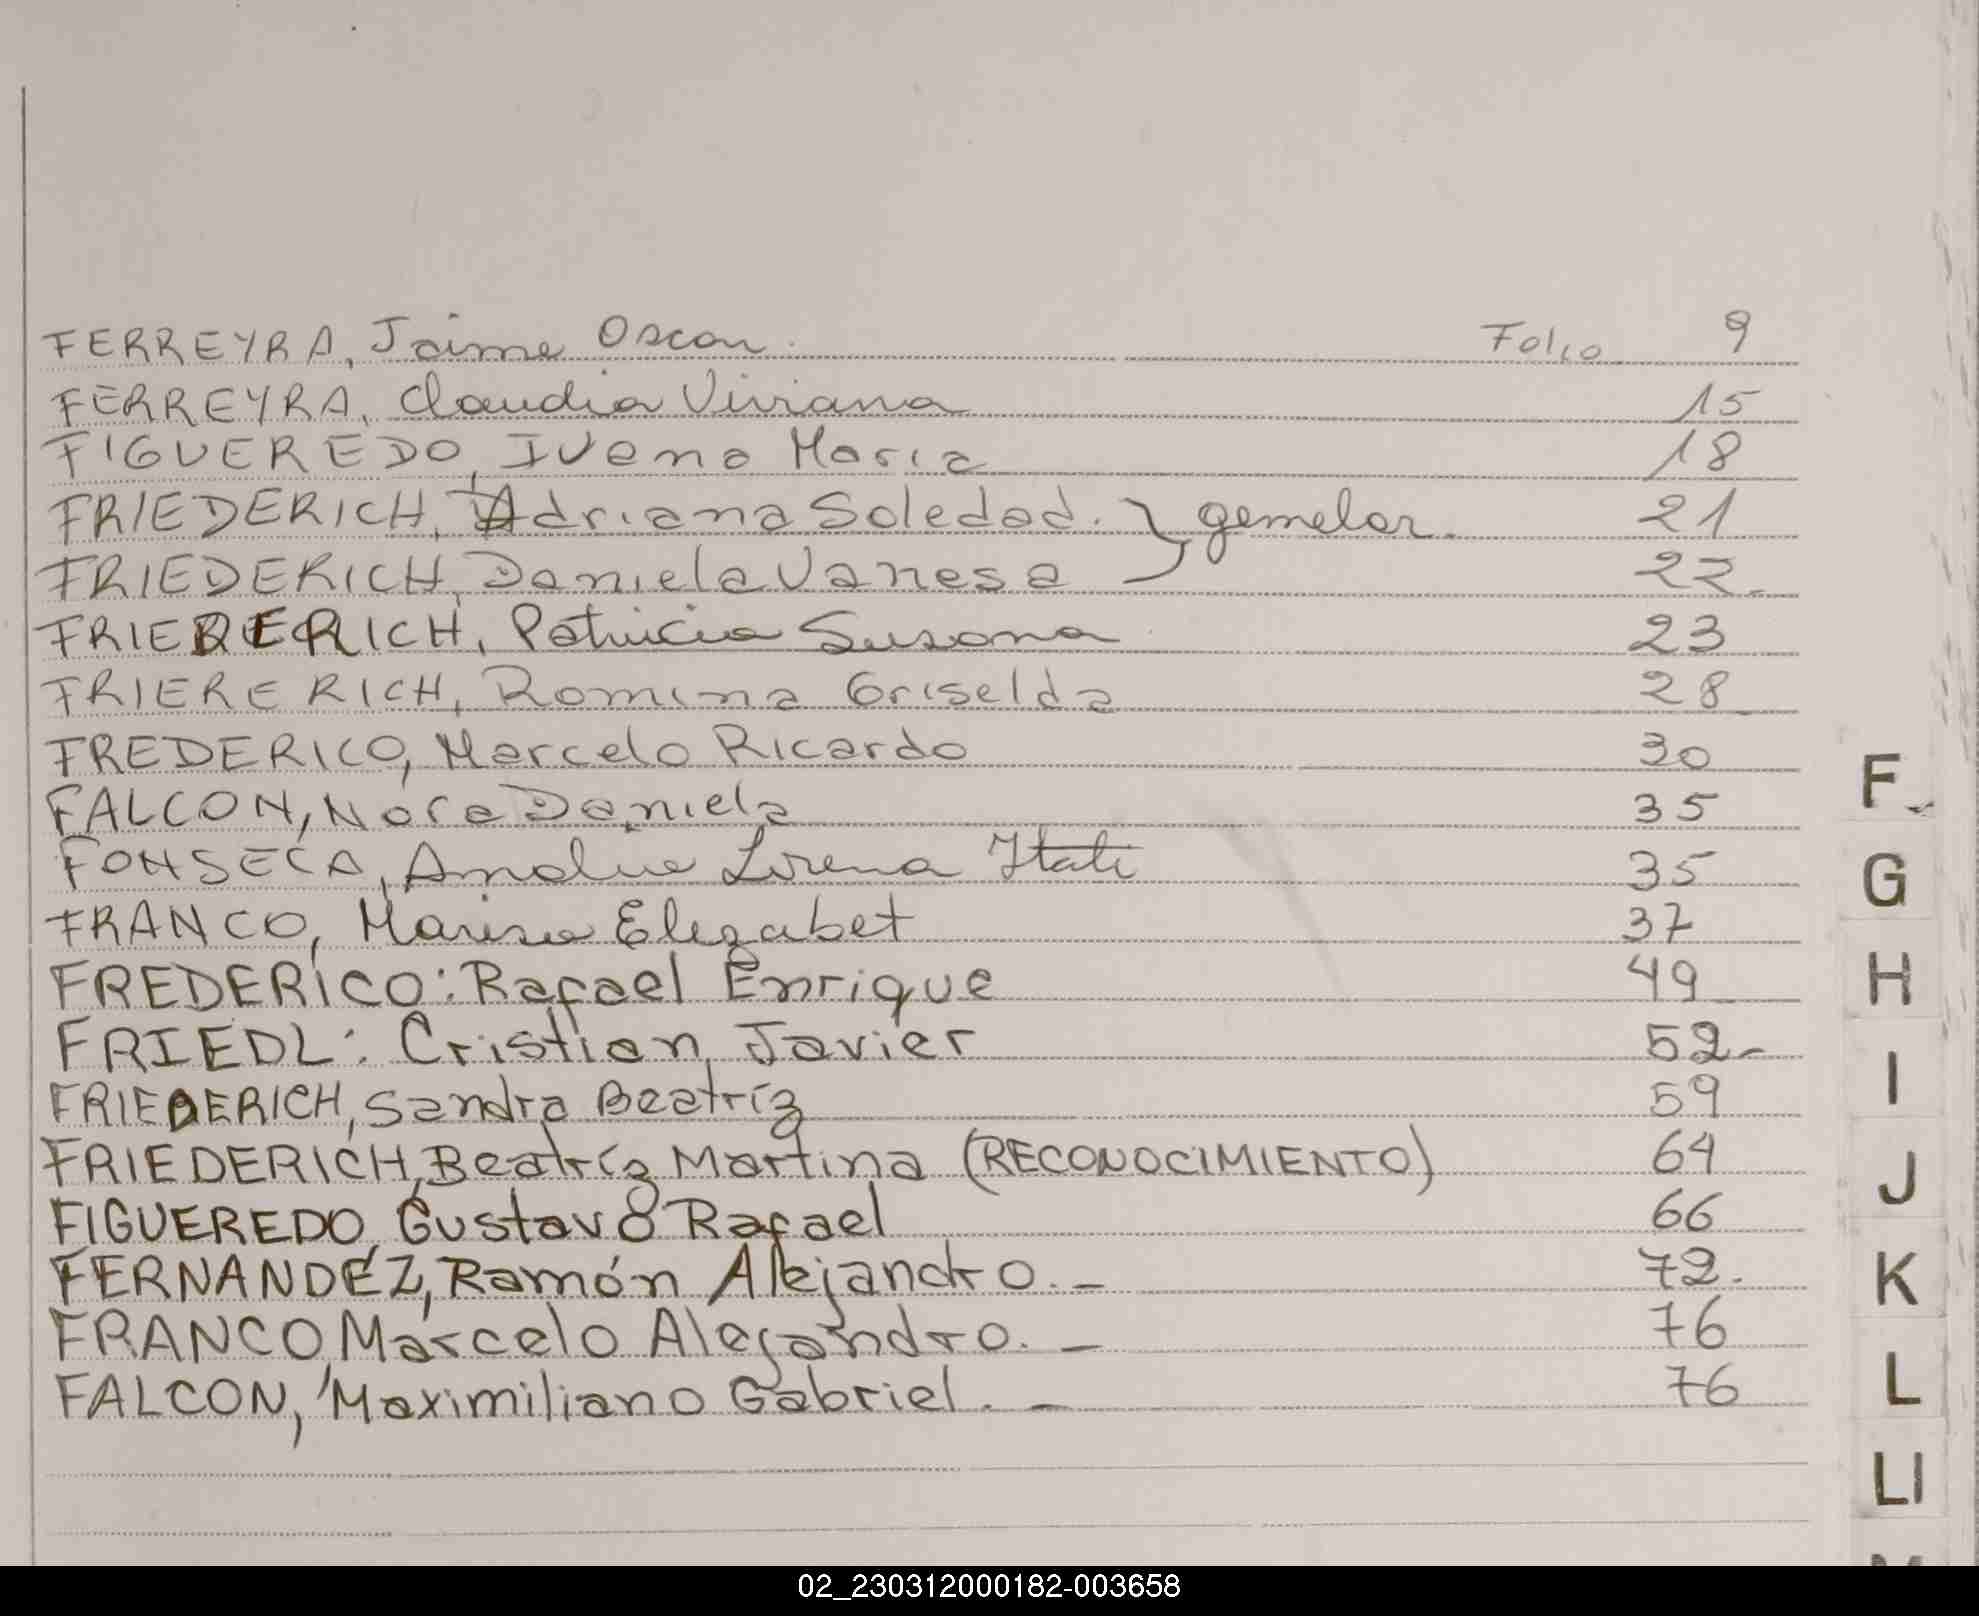 FERREYRA, Jaime Oscar. Folio 9
FERREYRA, Claudia Viviana 15
FIGUEREDO, Ivena Maria 18
FRIEDERICH, Adriana Soledad. } gemelas. 21
FRIEDERICH, Daniela Vanesa 22.
FRIEDERICH, Patricia Susana 23
FRIERERICH, Romina Griselda 28
FREDERICO, Marcelo Ricardo 30
FALCON, Nora Daniela 35
FONSECA, Lorena Itati 35
FRANCO, Marisa Elizabet 37
FREDERICO: Rafael Enrique 49
FRIEDL: Cristian Javier 52-
FRIEDERICH, Sandra Beatríz 59
FRIEDERICH, Beatríz Martina (RECONOCIMIENTO) 64
FIGUEREDO, Gustavo Rafael 66
FERNANDEZ, Ramón Alejandro.- 72.
FRANCO, Marcelo Alejandro.- 76
FALCON, Maximiliano Gabriel.- 76
F
G
H
I
J
K
L
Ll
02_230312000182-003658